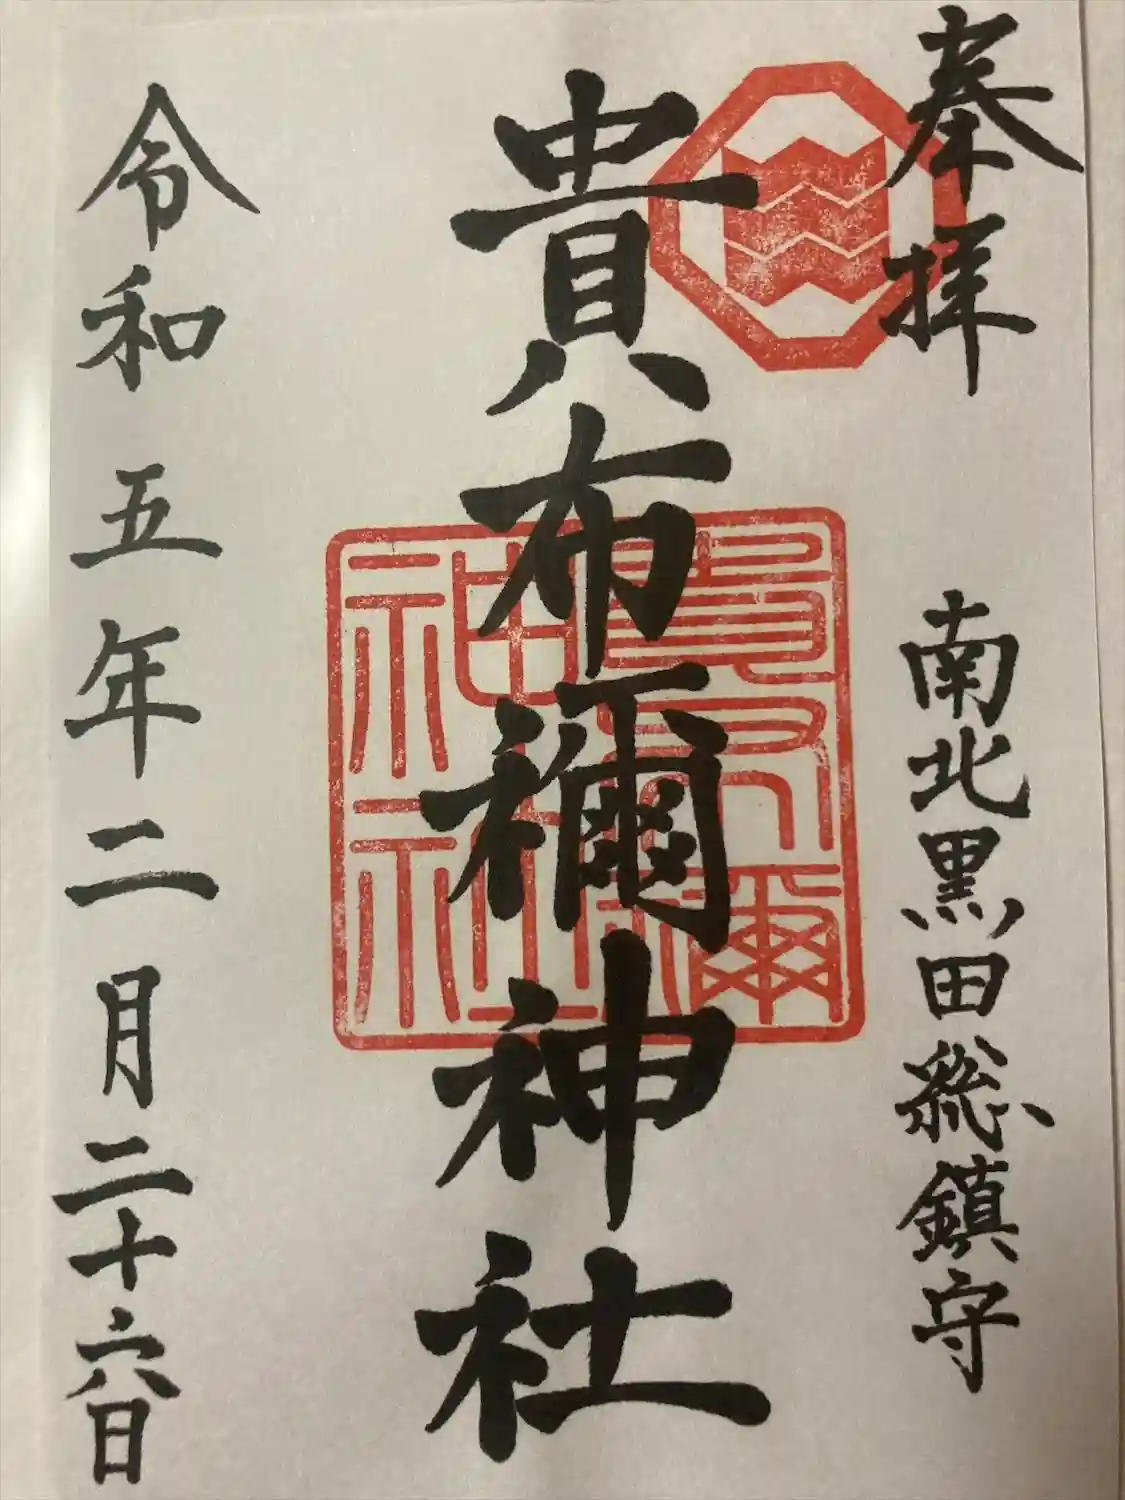 奉拝
南北黒田総鎮守
貴布禰神社
貴布禰
神社
令和五年二月二十六日